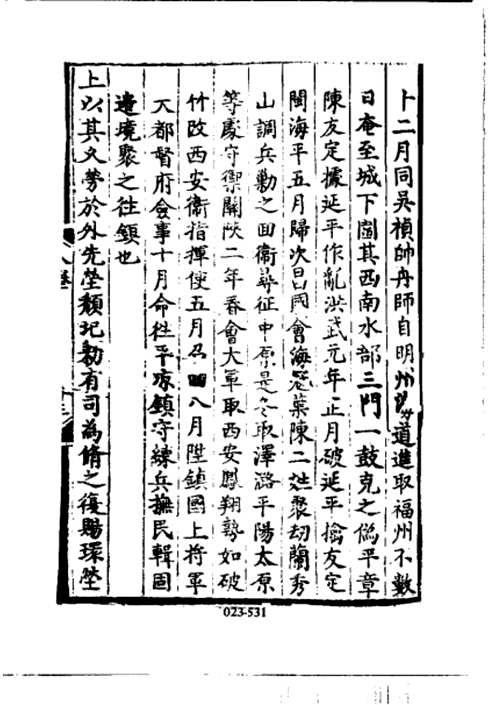 卜二月同吳禎帥舟師自明州海道進取福州不數
日奄至城下圍其西南水部三門一鼓克之僞平章
陳友定據延平作亂洪武元年正月破延平擒友定
閩海平五月歸次昌國會海寇葉陳二姓聚劫蘭秀
山調兵勦之回衞尋征中原是冬取澤潞平陽太原
等處守禦關陜二年春會大軍取西安鳳翔勢如破
竹改西安衞指揮使五月召回八月陞鎮國上將軍
大都督府僉事十月命往平凉鎮守練兵撫民輯固
邊境聚之往鎮也
上以其久勞於外先塋頹圮勑有司為脩之復賜環塋
023-531